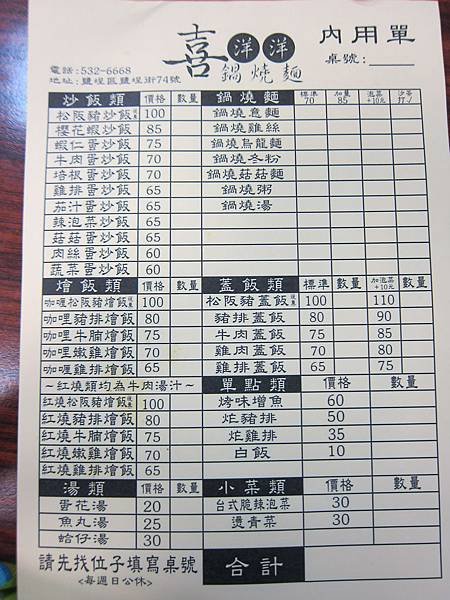 喜洋洋
鍋燒麵
內用單
桌號:
電話:532-6668
地址:鹽埕區鹽埕街74號
炒飯類 價格 數量
松阪豬炒飯 100
櫻花蝦炒飯 85
蝦仁蛋炒飯 75
牛肉蛋炒飯 70
培根蛋炒飯 70
雞排蛋炒飯 65
茄汁蛋炒飯 65
辣泡菜炒飯 65
菇菇蛋炒飯 65
肉絲蛋炒飯 60
蔬菜蛋炒飯 60
鍋燒麵 標準70 加量85 泡菜+10元 沙茶打✓
鍋燒意麵
鍋燒雞絲
鍋燒烏龍麵
鍋燒冬粉
鍋燒菇菇麵
鍋燒粥
鍋燒湯
燴飯類 價格 數量
咖喱松阪豬燴飯 100
咖哩豬排燴飯 80
咖哩牛腩燴飯 75
咖哩嫩雞燴飯 70
咖喱雞排燴飯 65
~紅燒類均為牛肉湯汁~
紅燒松阪豬燴飯 100
紅燒豬排燴飯 80
紅燒牛腩燴飯 75
紅燒嫩雞燴飯 70
紅燒雞排燴飯 65
蓋飯類 標準 數量 加泡菜+10元 數量
松阪豬蓋飯 100 110
豬排蓋飯 80 90
牛肉蓋飯 75 85
雞肉蓋飯 70 80
雞排蓋飯 65 75
單點類 價格 數量
烤味增魚 60
炸豬排 50
炸雞排 35
白飯 10
湯類 價格 數量
蛋花湯 20
魚丸湯 25
蛤仔湯 30
小菜類 價格 數量
台式脆辣泡菜 30
燙青菜 30
請先找位子填寫桌號
<每週日公休>
合計